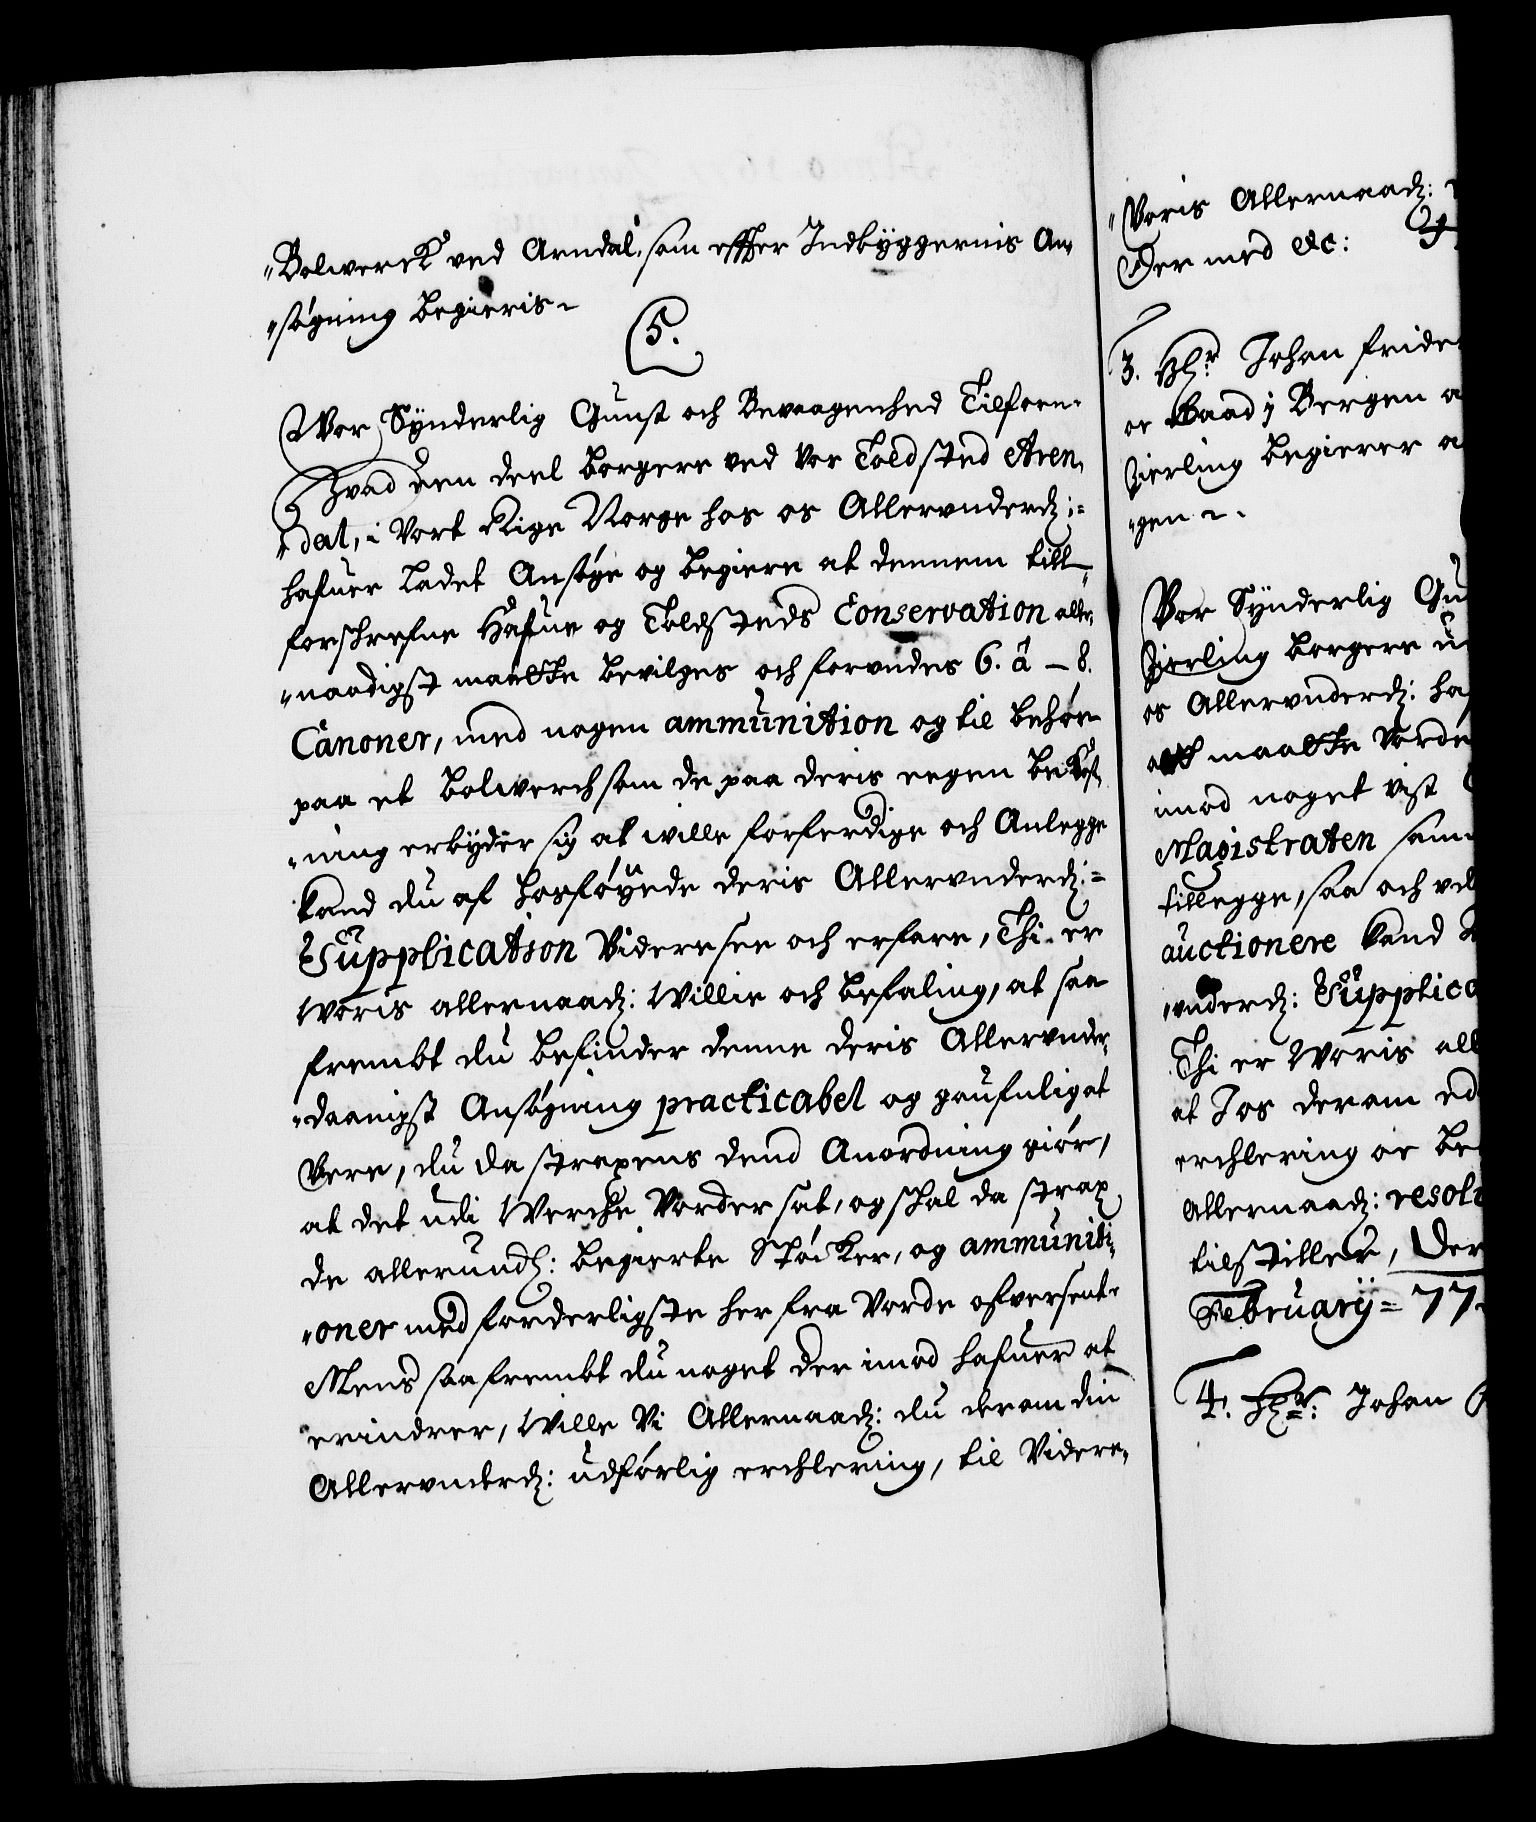 "Bolwerck ved Arndal, som effter Indbyggernis An„
"søgning begieris
5.
Wor Synderlig Gunst och Bevaagenhed Tilforn.
Hvad een deel borgere ved vor Toldsted Aren„
"dal, i Vort Rige Norge hos os Allervnderd:
hafuer ladet Ansøge og begiere at dennem till
forschrefne Hafne og Toldsteds Conservation aller„
"naadigst maatte bevilges och forundes 6. â - 8.
Canoner, med nogen ammunition og til behør
paa et bolwerch som de paa deris eegen bekost„
"ning erbyder sig at wille forferdige och Anlegge
kand du af hosføyede deris Allervnderd:
Supplication Videre see och erfare, Thi er
Woris allernaad: Willie och befaling, at saa
frembt du befinder denne deris Allervnder„
"daanigst Ansøgning practicabel og gaufnligat
Vere, du da straxens dend Anordning giør,
at det udi Werche Vorder sat, og schal da strax
de allerund: begierte Støcker, og ammuniti„
"oner med forderligste her fra Vorde ofversent.
Mens saafrembt du noget der imod hafuer at
erindrer, Wille Vi Allernaad: du derom din
Allervnderd: udførlig erchlering, til Videre„
"Voris Allernaad:
Der med &c:
3. Hr Johan Fride
or Raad i Bergen a
Zierling begierer a
"gen
Vor Synderlig Gu
Zierling borgere u
os Allervnderd: ha
att maatte Vorde
imod noget vist
Magistraten sam
tillegge, saa och vel
auctionere kand
"vnderd: Supplica
Thi er Woris all
at I os derom ed
erchlering oc be
Allernaad: resolu
tilstiller, Der
February = 77
4. Hr: Johan